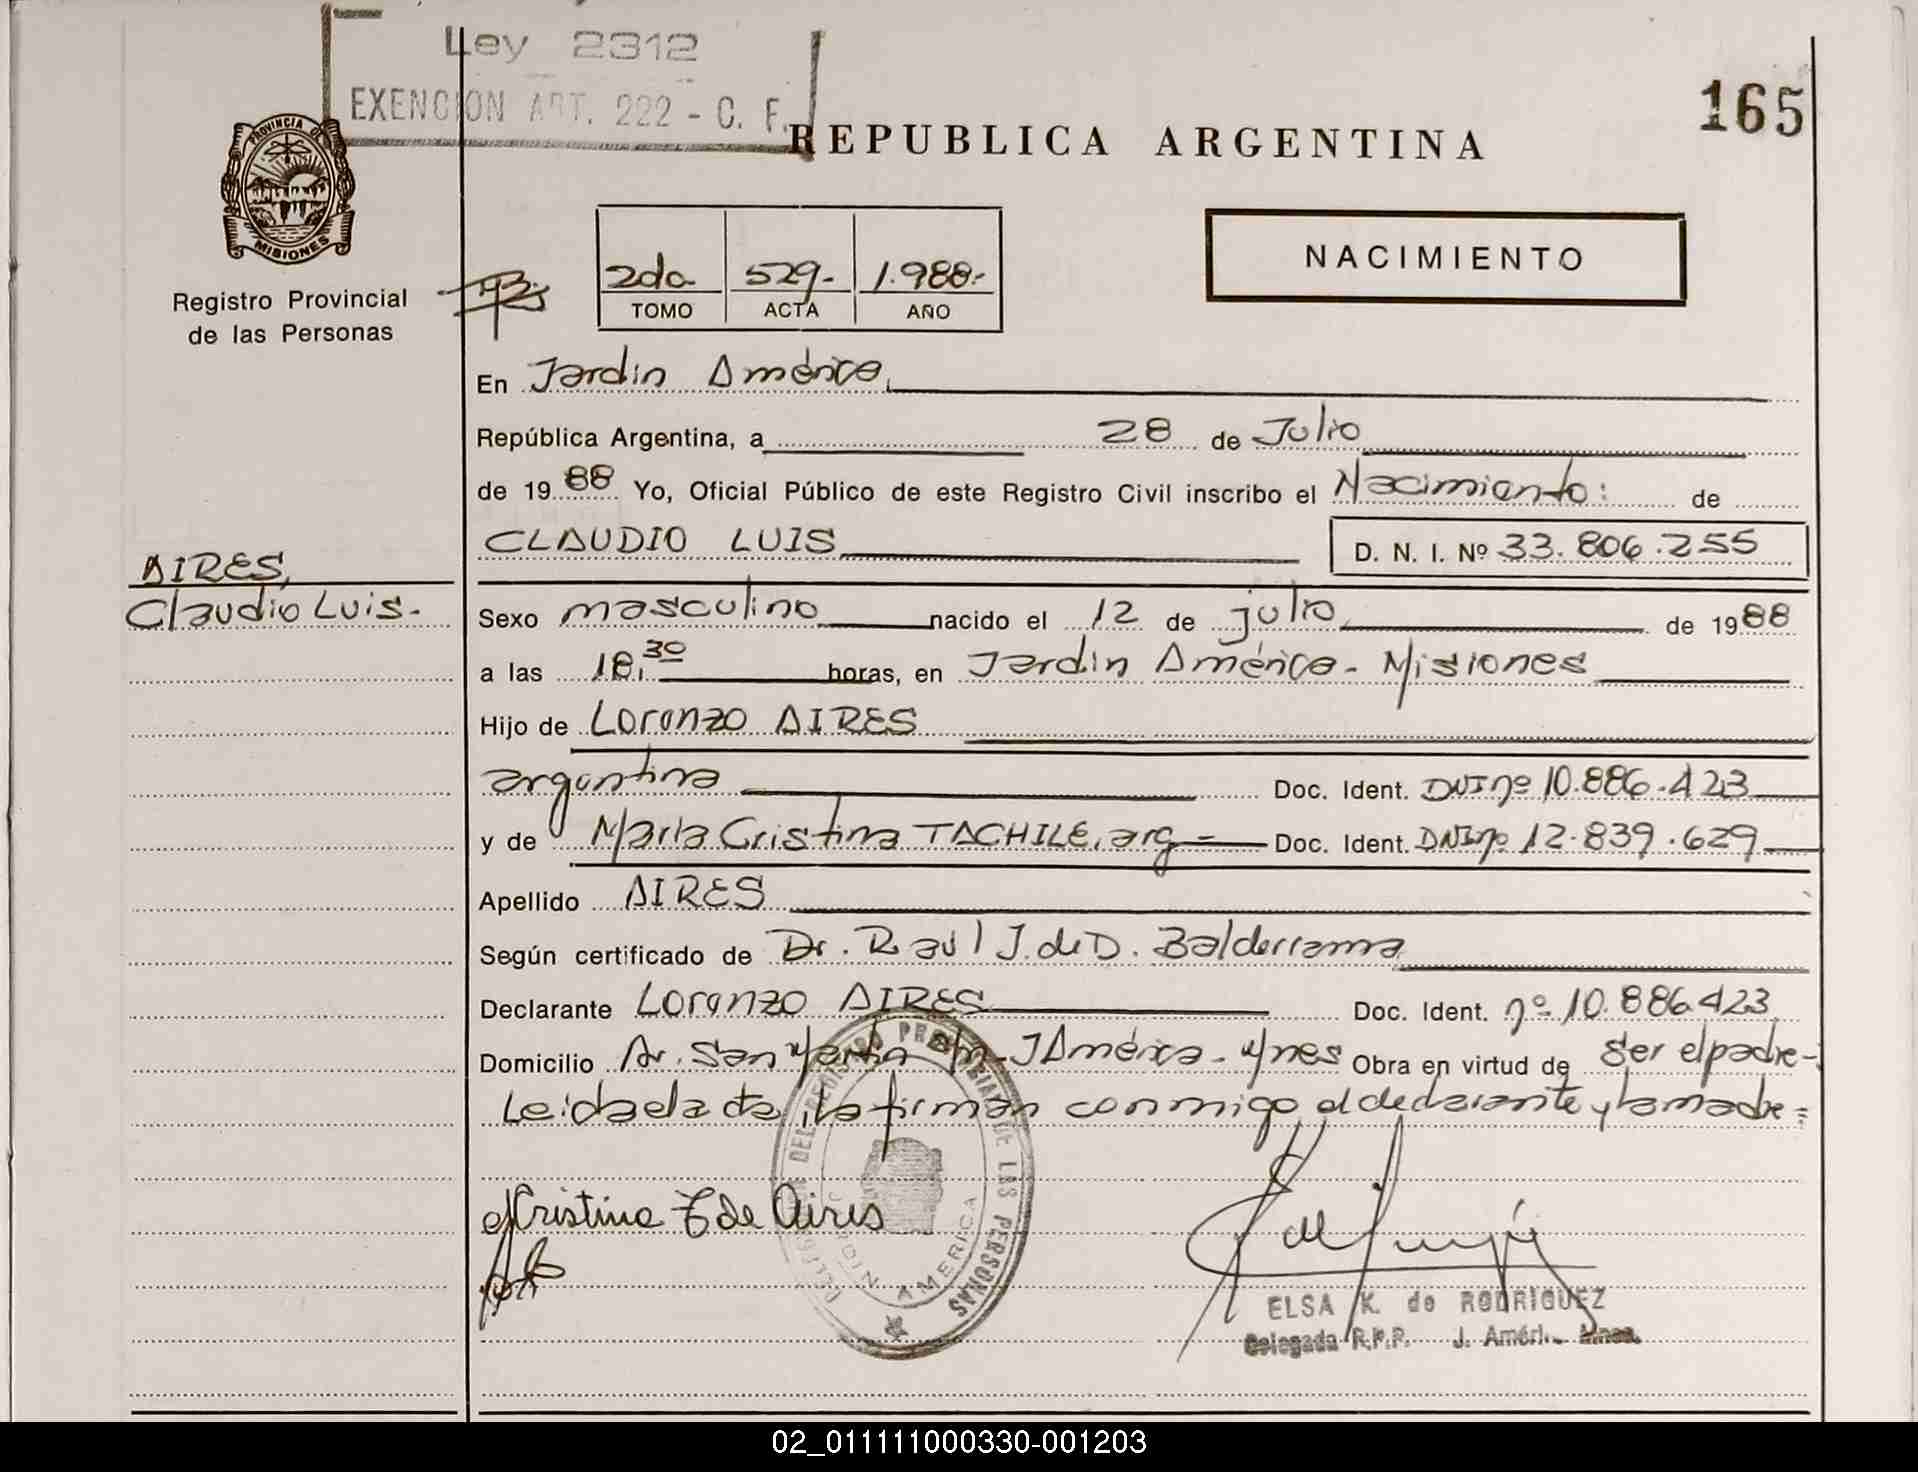 Ley 2312
EXENCION ART. 222 - C. F.
165
REPUBLICA ARGENTINA
PROVINCIA DE
MISIONES
Registro Provincial
de las Personas
2do 529- 1.988.-
TOMO ACTA AÑO
NACIMIENTO
En Jardin América,
República Argentina, a 28 de Julio
de 1988 Yo, Oficial Público de este Registro Civil inscribo el Nacimiento: de
CLAUDIO LUIS D. N. I. Nº 33.806.255
AIRES,
Claudio Luis.-
Sexo masculino nacido el 12 de julio de 1988
a las 18,30 horas, en Jardin América - Misiones
Hijo de Lorenzo AIRES
argentina Doc. Ident. DNI nº 10.886.423
y de Maria Cristina TACHILE, arg= Doc. Ident. DNI nº 12.839.629
Apellido AIRES
Según certificado de Dr. Raúl J. de D. Balderrama
Declarante Lorenzo AIRES Doc. Ident. nº 10.886.423
Domicilio Av. San Martin s/n - J América - Mnes Obra en virtud de ser el padre-
Leida el acta, la firman conmigo el declarante y la madre=
DEL REGISTRO PROVINCIAL DE LAS PERSONAS
JARDIN AMERICA
Cristina T de Aires
ELSA K. de RODRIGUEZ
Delegada R.P.P. J. Améri. Mnes.
02_011111000330-001203